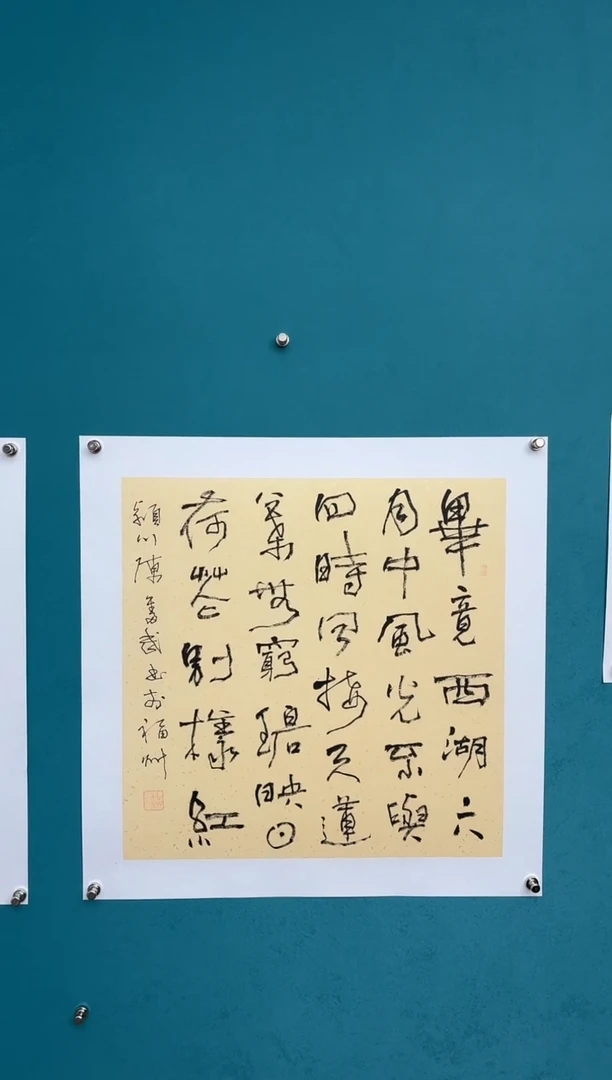 畢竟西湖六
月中風光不與
四時同接天蓮
葉無窮碧映日
荷花別樣紅
潁川陳奮武書於福州